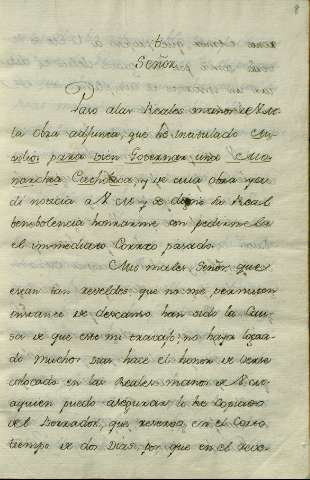 8
Señor.
Paso a las Reales manos de V.M.
la obra adjunta, que he intitulado Au-
xilios para bien Governar una Mo-
narchia Catholica, y de cuia obra ya
di noticia a V.M. y se digno la Real
benebolencia honrarme con pedirmela
el immediato Correo pasado.
Mis males, Señor, que
eran tan reveldes, que no me permitian
instante de descanso han sido la Cau-
sa de que este mi travajo, no haya logra-
do muchos Dias hace el honor de verse
colocado en las Reales manos de V.M.
a quien puedo asegurar, lo he Copiado
del Borrador, que reserva, en el Corto
tiempo de dos Dias, por que en el